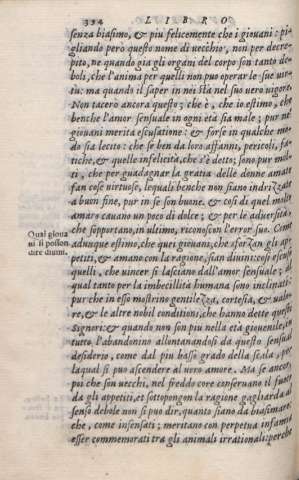 394 LIBRO
senza biasimo, & piu felicemente che i giouani: pi-
gliando però questo nome di uecchio, non per decre-
pito, ne quando gia gli organi del corpo son tanto de-
boli, che l'anima per quelli non puo operar le sue uir-
tu: ma quando il saper in noi sta nel suo uero uigore.
Non tacerò ancora questo; che è, che io estimo, che
benche l'amor sensuale in ogni età sia male; pur ne'
giouani merita escusatione: & forse in qualche mo-
do sia lecito: che se ben da loro affanni, pericoli, fa-
tiche, & quelle infelicità, che s'è detto; sono pur mol-
ti, che per guadagnar la gratia delle donne amate
fan cose uirtuose, lequali benche non siano indrizzate
a buon fine, pur in se son buone. & cosi di quel molto
amaro cauano un poco di dolce; & per le aduersità,
che sopportano, in ultimo, riconoscon l'error suo. Come
Qual gioua
ni si posson
dire diuini.
adunque estimo, che quei giouani, che sforzan gli ap-
petiti, & amano con la ragione, sian diuini: cosi escuso
quelli, che uincer si lasciano dall'amor sensuale; al
qual tanto per la imbecillità humana sono inclinati:
pur che in esso mostrino gentilezza, cortesia, & ualo-
re, & le altre nobil conditioni, che hanno dette questi
Signori: & quando non son piu nella età giouenile, in
tutto l'abandonino allontanandosi da questo sensual
desiderio, come dal piu basso grado della scala, per
laqual si puo ascendere al uero amore. Ma se ancor,
poi che son uecchi, nel freddo core conseruano il fuoco
da gli appetiti, et sottopongon la ragione gagliarda al
senso debole non si puo dir, quanto siano da biasimare:
che, come insensati; meritano con perpetua infamia
esser commemorati tra gli animali irrationali: perche